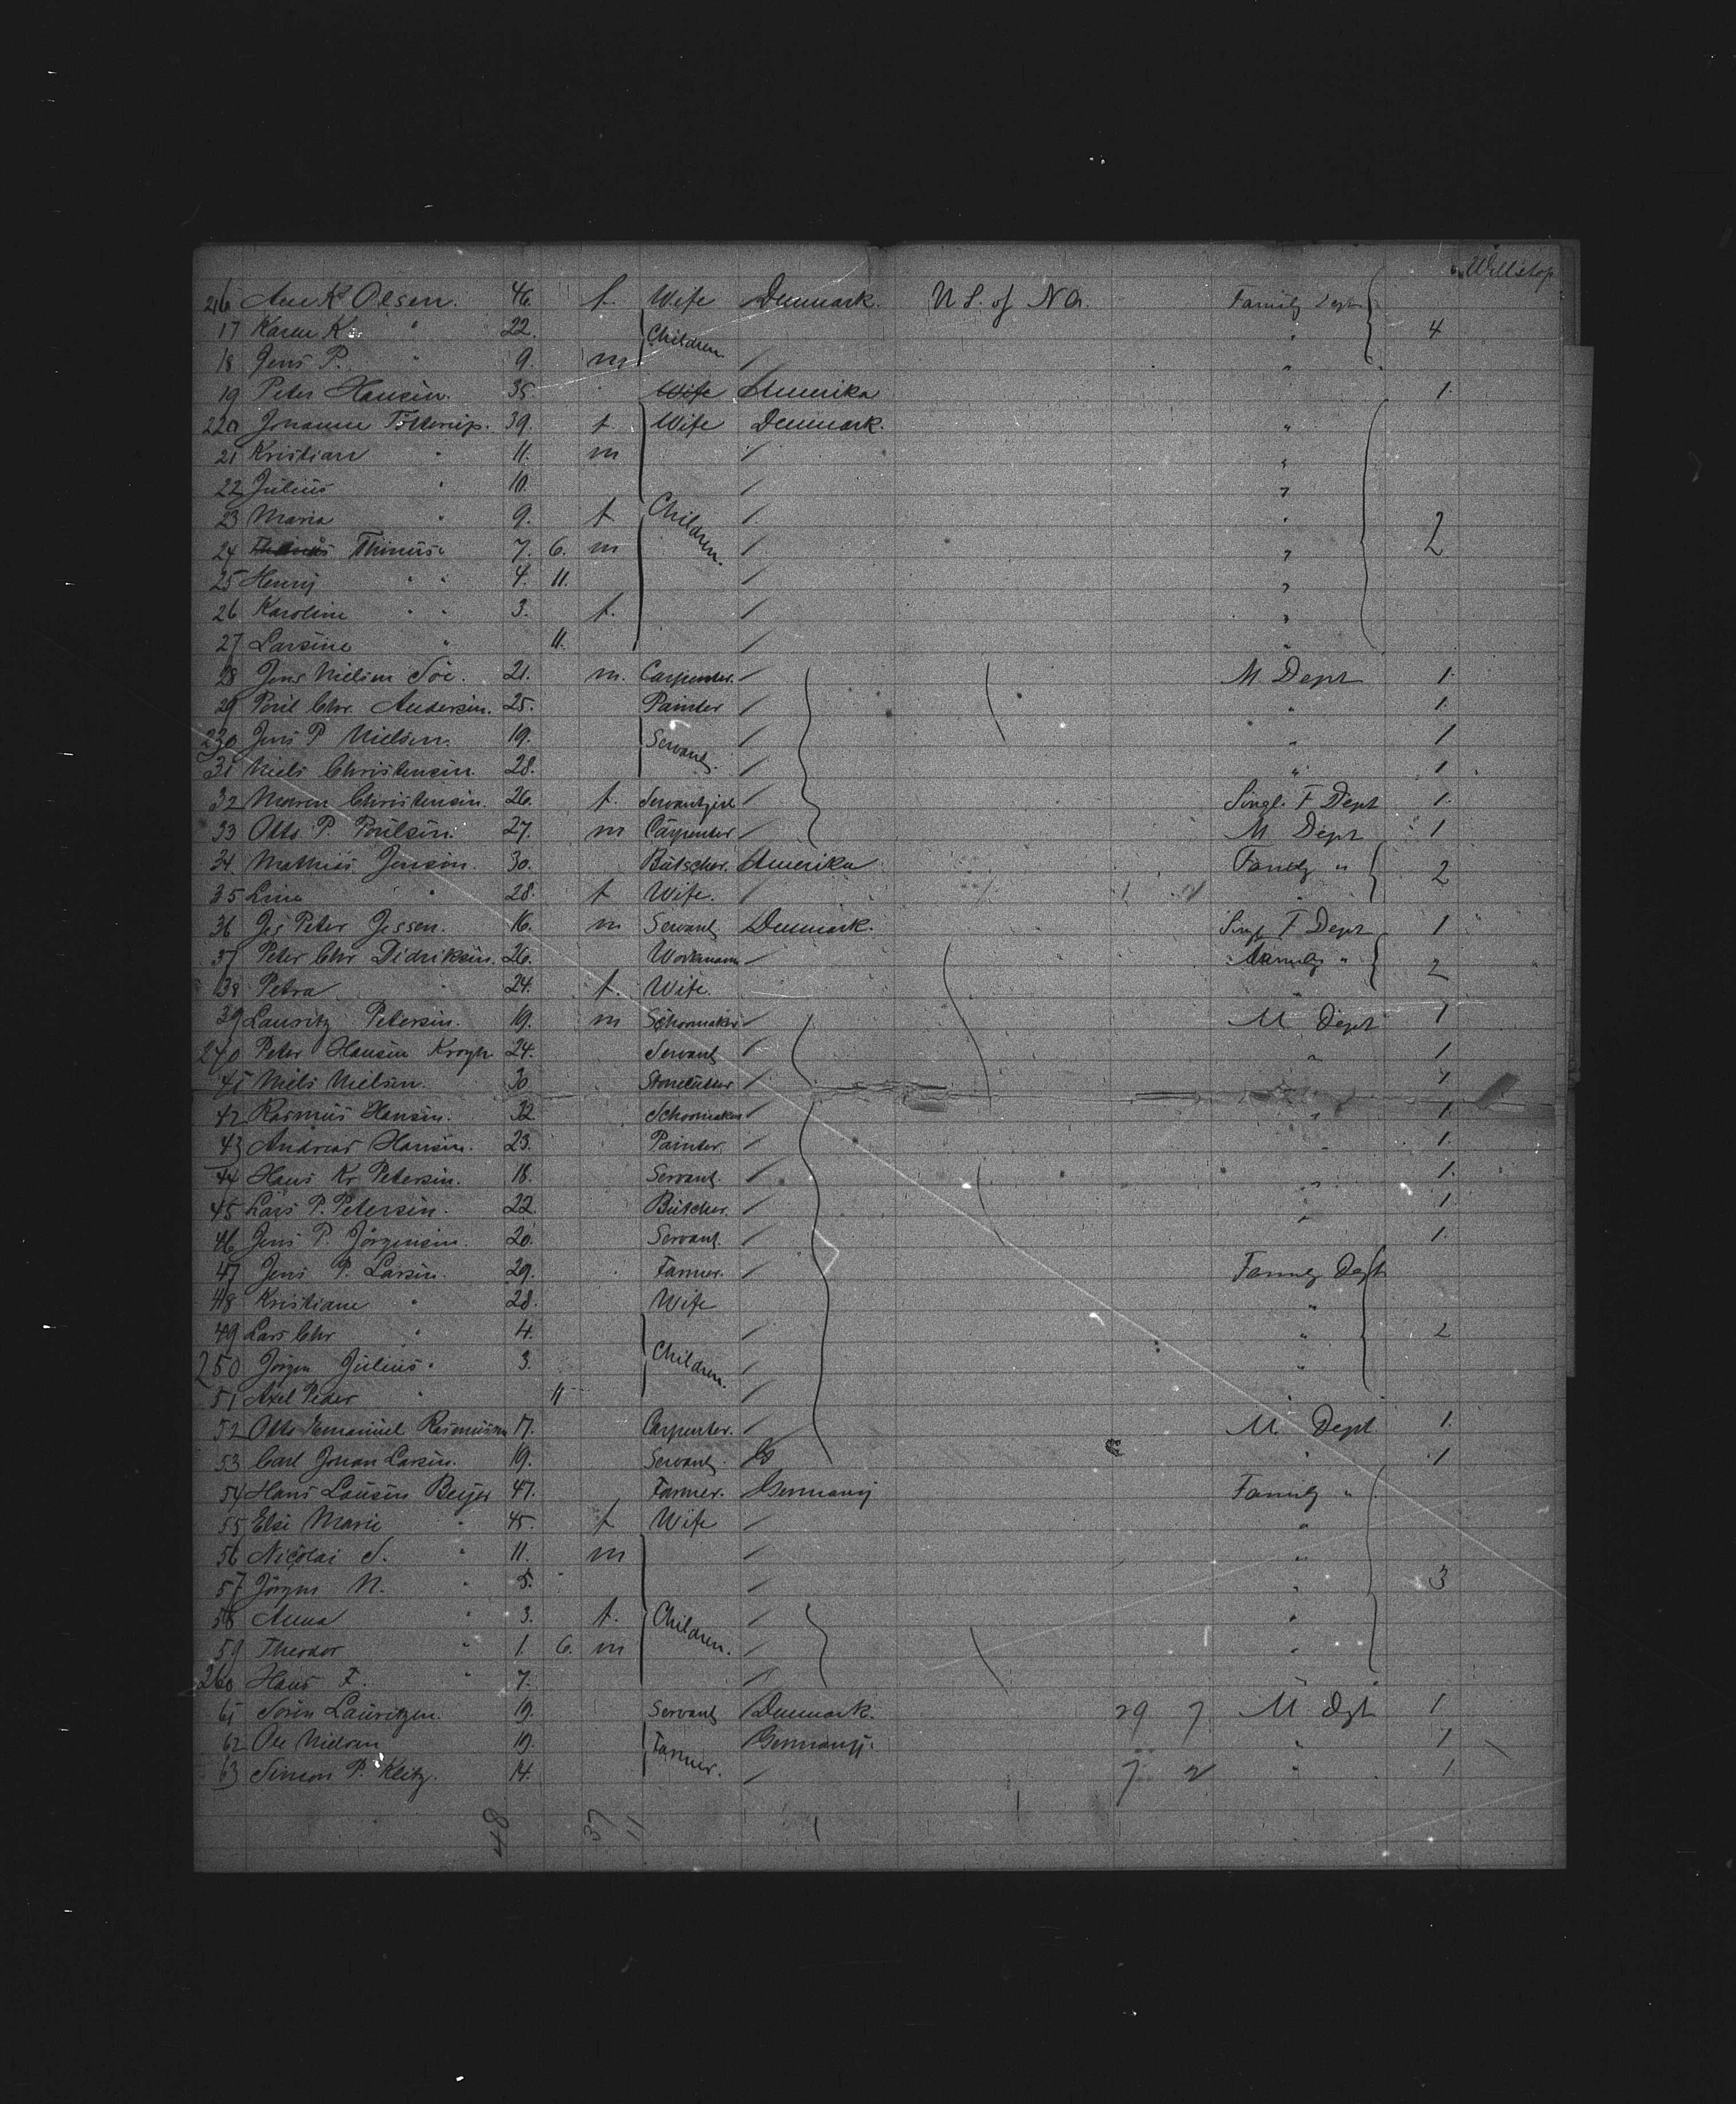 Will stop
216 Ane K Olsen. 46. f. Wife Denmark. U S. of N A. Family Dept
17 Karen K. " 22. Children " 4
18 Jens P. " 9. m / "
19 Peter Hansen. 35. Amerika " 1.
220 Johanne 39. f. Wife Denmark. "
21 Kristian " 11. m / "
22 Julius " 10. / "
23 Maria " 9. f. Children. / "
24 Thinus " 7. 6. m / " 2
25 Henry " " 4. 11. / "
26 Karoline " " 3. f. / "
27 Larsine " 11. / "
28 Jens Nielsen Söe. 21. m. Carpenter. / M Dept 1.
29 Poul Chr. Andersen. 25. Painter / " 1.
230 Jens P Nielsen. 19. Servant. / " 1
31 Niels Christensen. 28. / " 1.
32 Maren Christensen. 26. f. Servantgirl / Singl. F Dept 1.
33 Otto P Poulsen. 27. m Carpenter / M Dept 1
34 Mathias Jensen. 30. Butscher. Amerika Family " 2
35 Line " 28. f Wife. / "
36 Jes Peter Jessen. 16. m Servant Denmark. Singl F Dept 1
37 Peter Chr Didriksen. 26. Workmann / Family " 2
38 Petra " 24. f. Wife. "
39 Lauritz Petersen. 19. m Schoomaker / M Dept 1
240 Peter Hansen Krogh 24. Servant / " 1
41 Niels Nielsen. 30 Stonecutter / 1
42 Rasmus Hansen. 32 Schoomaker / " 1.
43 Andreas Hansen. 23. Painter. / " 1.
44 Hans Kr Petersen. 18. Servant. / " 1.
45 Lars P. Petersen. 22 Butcher. / " 1
46 Jens P. Jörgensen. 20. Servant. / 1.
47 Jens P. Larsen. 29. Farmer. / Family Dept
48 Kristiane " 28. Wife "
49 Lars Chr " 4. Children. / " 2
250 Jörgen Julius " 3. / "
51 Axel Peder " 11 / "
52 Otto Emanuel Rasmussen 17. Carpenter. / M. Dept. 1.
53 Carl Johan Larsen. 19. Servant. " 1
54 Hans Lausen Beyer 47. Farmer. Germany Family "
55 Else Marie " 45. f Wife / "
56 Nicolai S. " 11. m / "
57 Jörgen N. " 5. / " 3
58 Anna " 3. f. Children. / "
59 Theodor " 1. 6. m / "
260 Hans F. " 7. / "
61 Sören Lauritzen. 19. Servant Denmark. 29 7 M Dpt 1
62 Ole Nielsen 19. Farmer. Germany. " 1
63 Simon P. Kleitz. 14. / 7 2 " 1
48 37 11